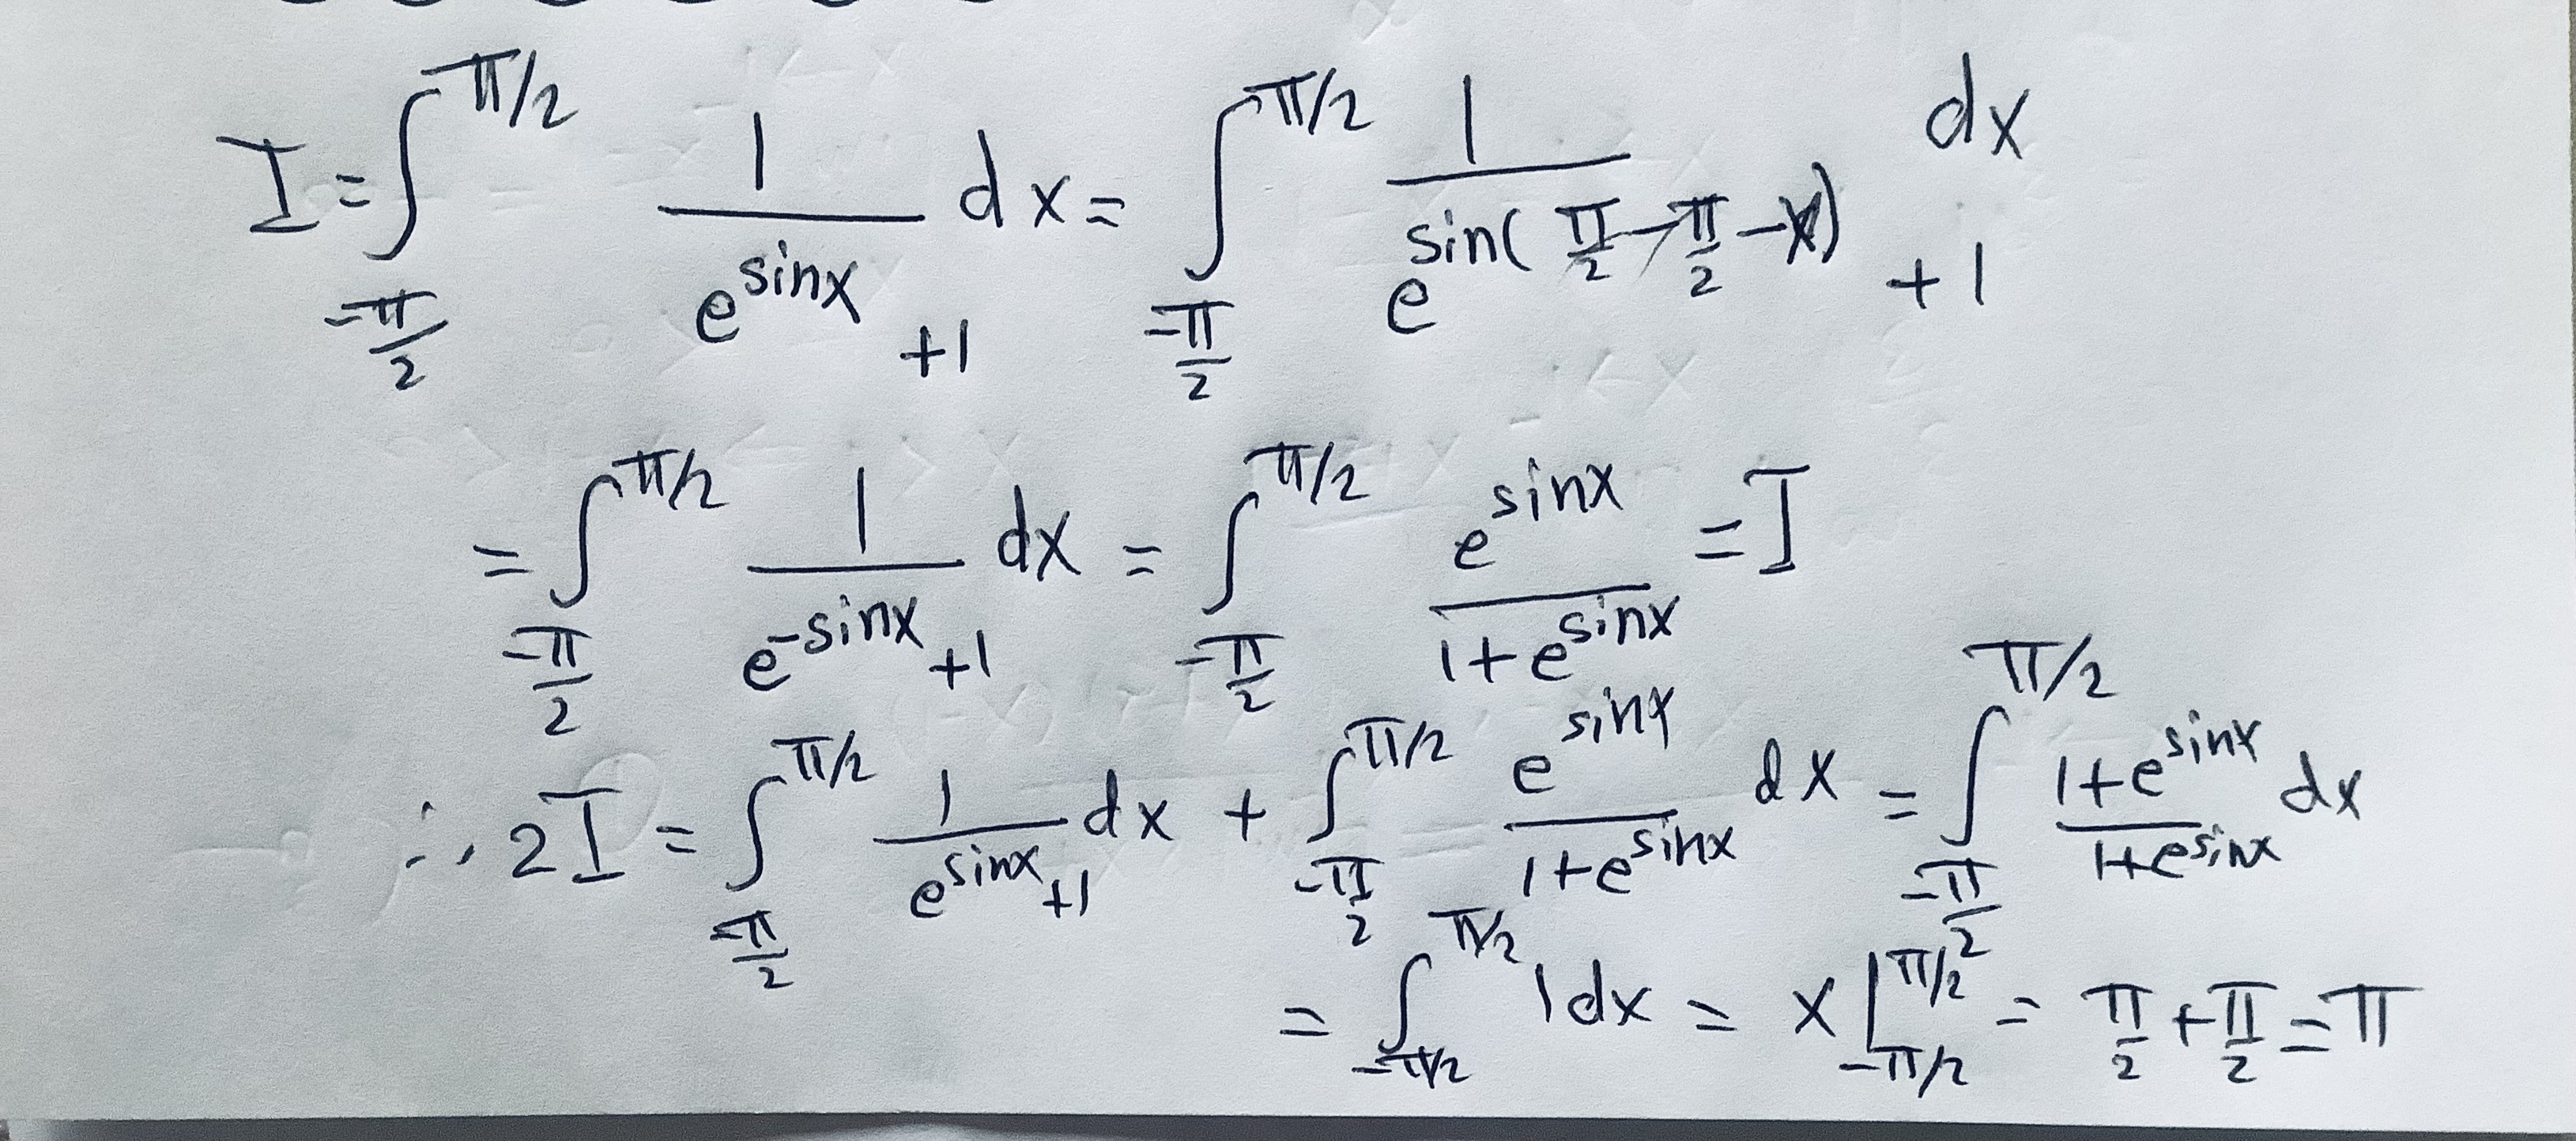 I = ∫_{-π/2}^{π/2} 1/(e^{sinx} + 1) dx = ∫_{-π/2}^{π/2} 1/(e^{sin(π/2 - π/2 - x)} + 1) dx
= ∫_{-π/2}^{π/2} 1/(e^{-sinx} + 1) dx = ∫_{-π/2}^{π/2} e^{sinx}/(1 + e^{sinx}) = I
∴ 2I = ∫_{-π/2}^{π/2} 1/(e^{sinx} + 1) dx + ∫_{-π/2}^{π/2} e^{sinx}/(1 + e^{sinx}) dx = ∫_{-π/2}^{π/2} (1 + e^{sinx})/(1 + e^{sinx}) dx
= ∫_{-π/2}^{π/2} 1 dx = x |_{-π/2}^{π/2} = π/2 + π/2 = π